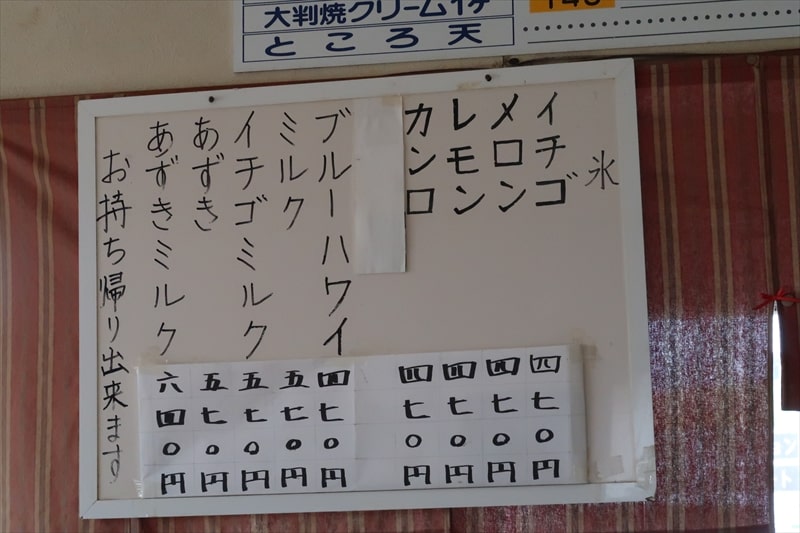 大判焼クリーム1ケ
ところ天
氷
イチゴ 四七〇円
メロン 四七〇円
レモン 四七〇円
カンロ 四七〇円
ブルーハワイ 四七〇円
ミルク 五七〇円
イチゴミルク 五七〇円
あずき 五七〇円
あずきミルク 六四〇円
お持ち帰り出来ます